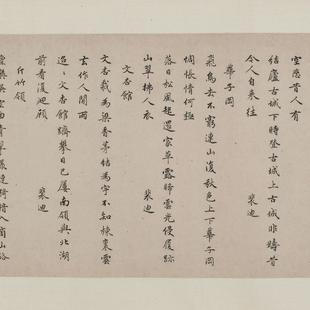 空悲昔人有
結廬古城下時登古城上古城非疇昔
今人自來往 裴迪
華子岡
飛鳥去不窮連山復秋色上下華子岡
惆悵情何極
落日松風起還家草露晞雲光侵履跡
山翠拂人衣 裴迪
文杏館
文杏裁為梁香茅結為宇不知棟裏雲
去作人間雨
迢〻文杏館躋攀日已屢南嶺與北湖
前看復迴顧 裴迪
斤竹嶺
空曲青翠漾漣漪暗入商山路